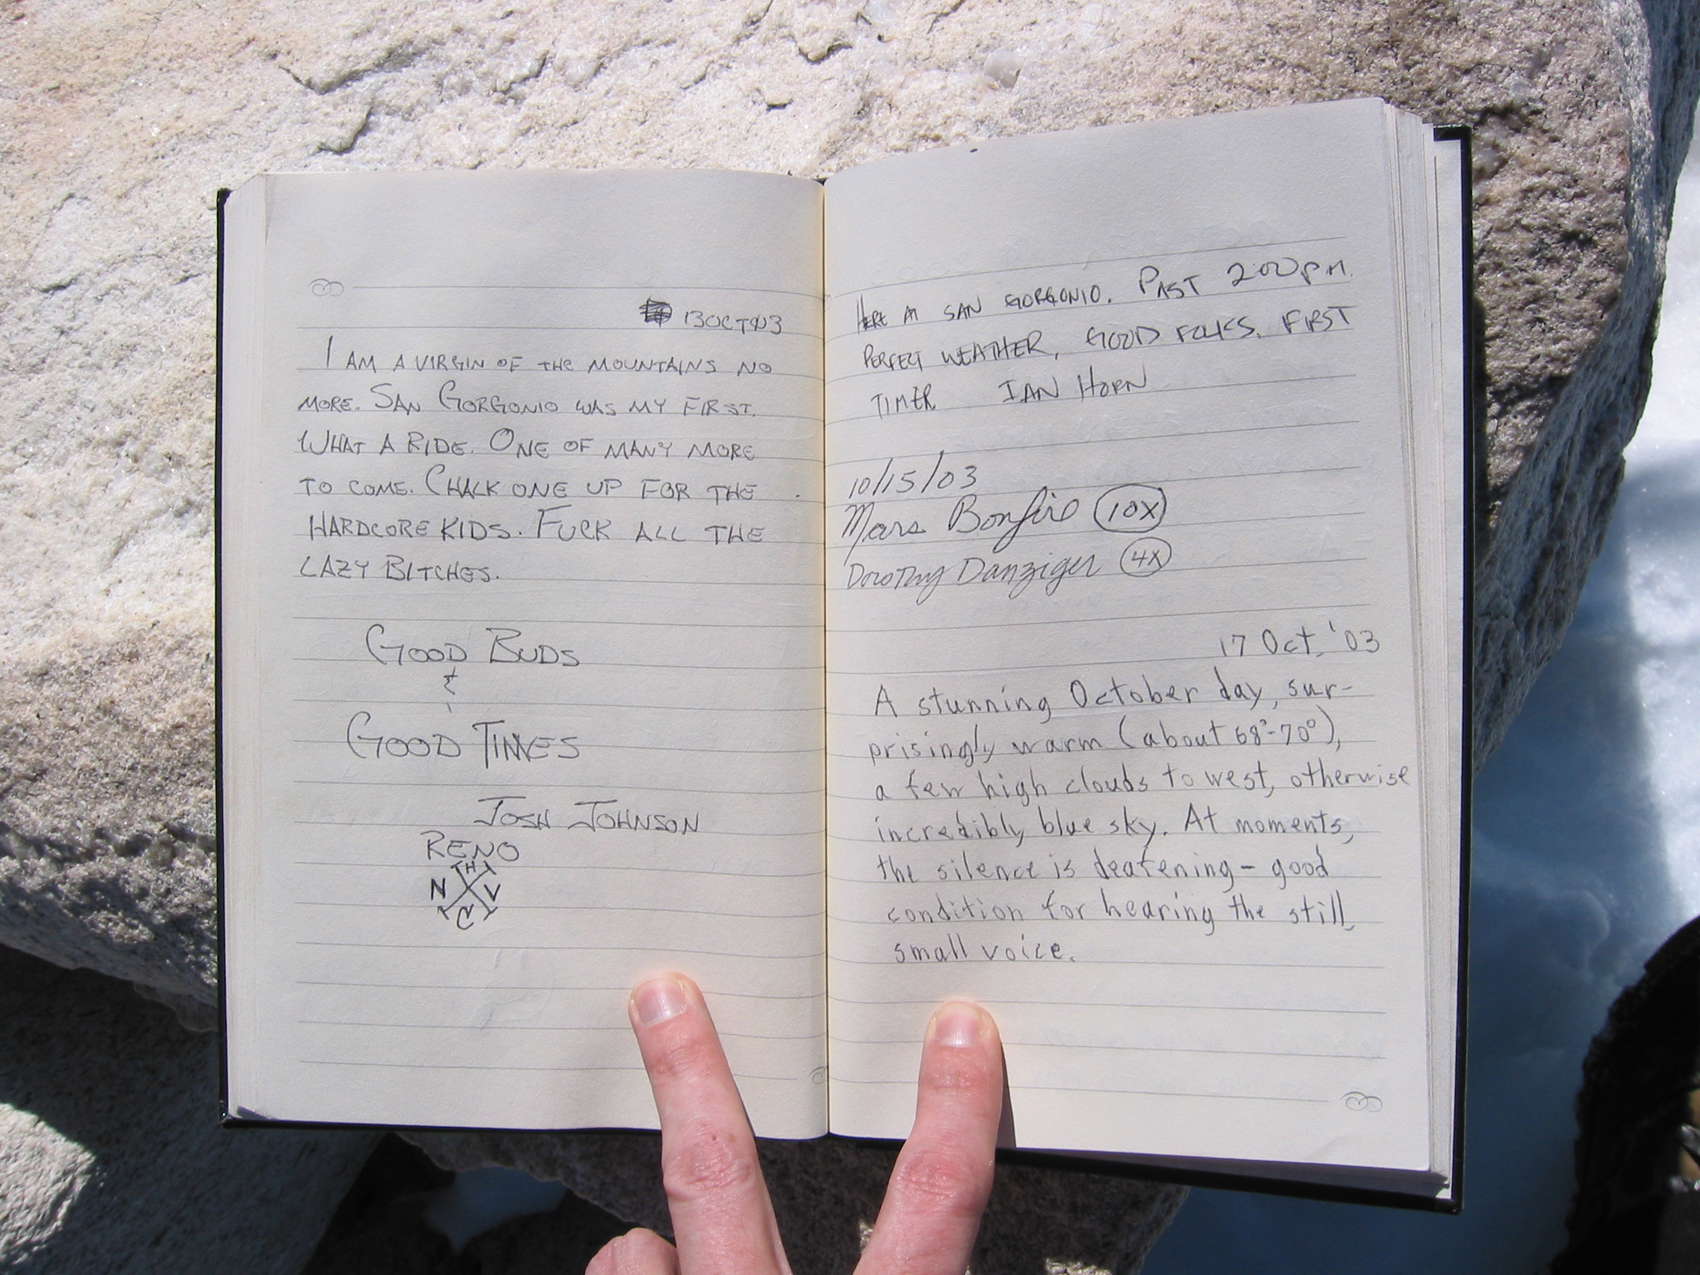 13OCT03
I AM A VIRGIN OF THE MOUNTAINS NO
MORE. SAN GORGONIO WAS MY FIRST.
WHAT A RIDE. ONE OF MANY MORE
TO COME. CHALK ONE UP FOR THE
HARDCORE KIDS. FUCK ALL THE
LAZY BITCHES.
GOOD BUDS
&
GOOD TIMES
JOSH JOHNSON
RENO
H
N V
C
HERE AT SAN GORGONIO. PAST 2:00 PM.
PERFECT WEATHER, GOOD FOLKS. FIRST
TIMER IAN HORN
10/15/03
Mars Bonfire 10X
Dorothy Danziger 4X
17 Oct. '03
A stunning October day, sur-
prisingly warm (about 68°-70°),
a few high clouds to west, otherwise
incredibly blue sky. At moments,
the silence is deafening - good
condition for hearing the still,
small voice.